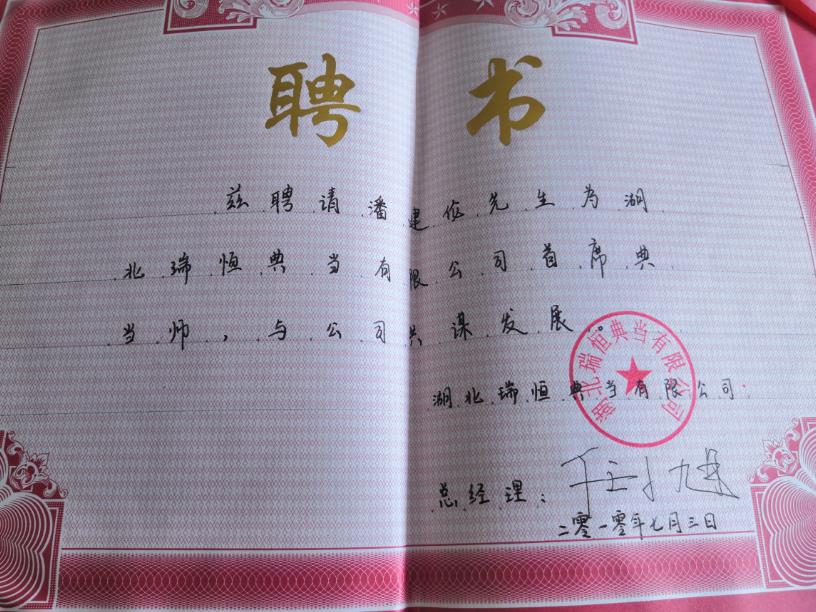 聘书
兹聘请潘建俭先生为湖
北瑞恒典当有限公司首席典
当师，与公司共谋发展。
湖北瑞恒典当有限公司
湖北瑞恒典当有限公司
总经理：
二零一零年七月三日